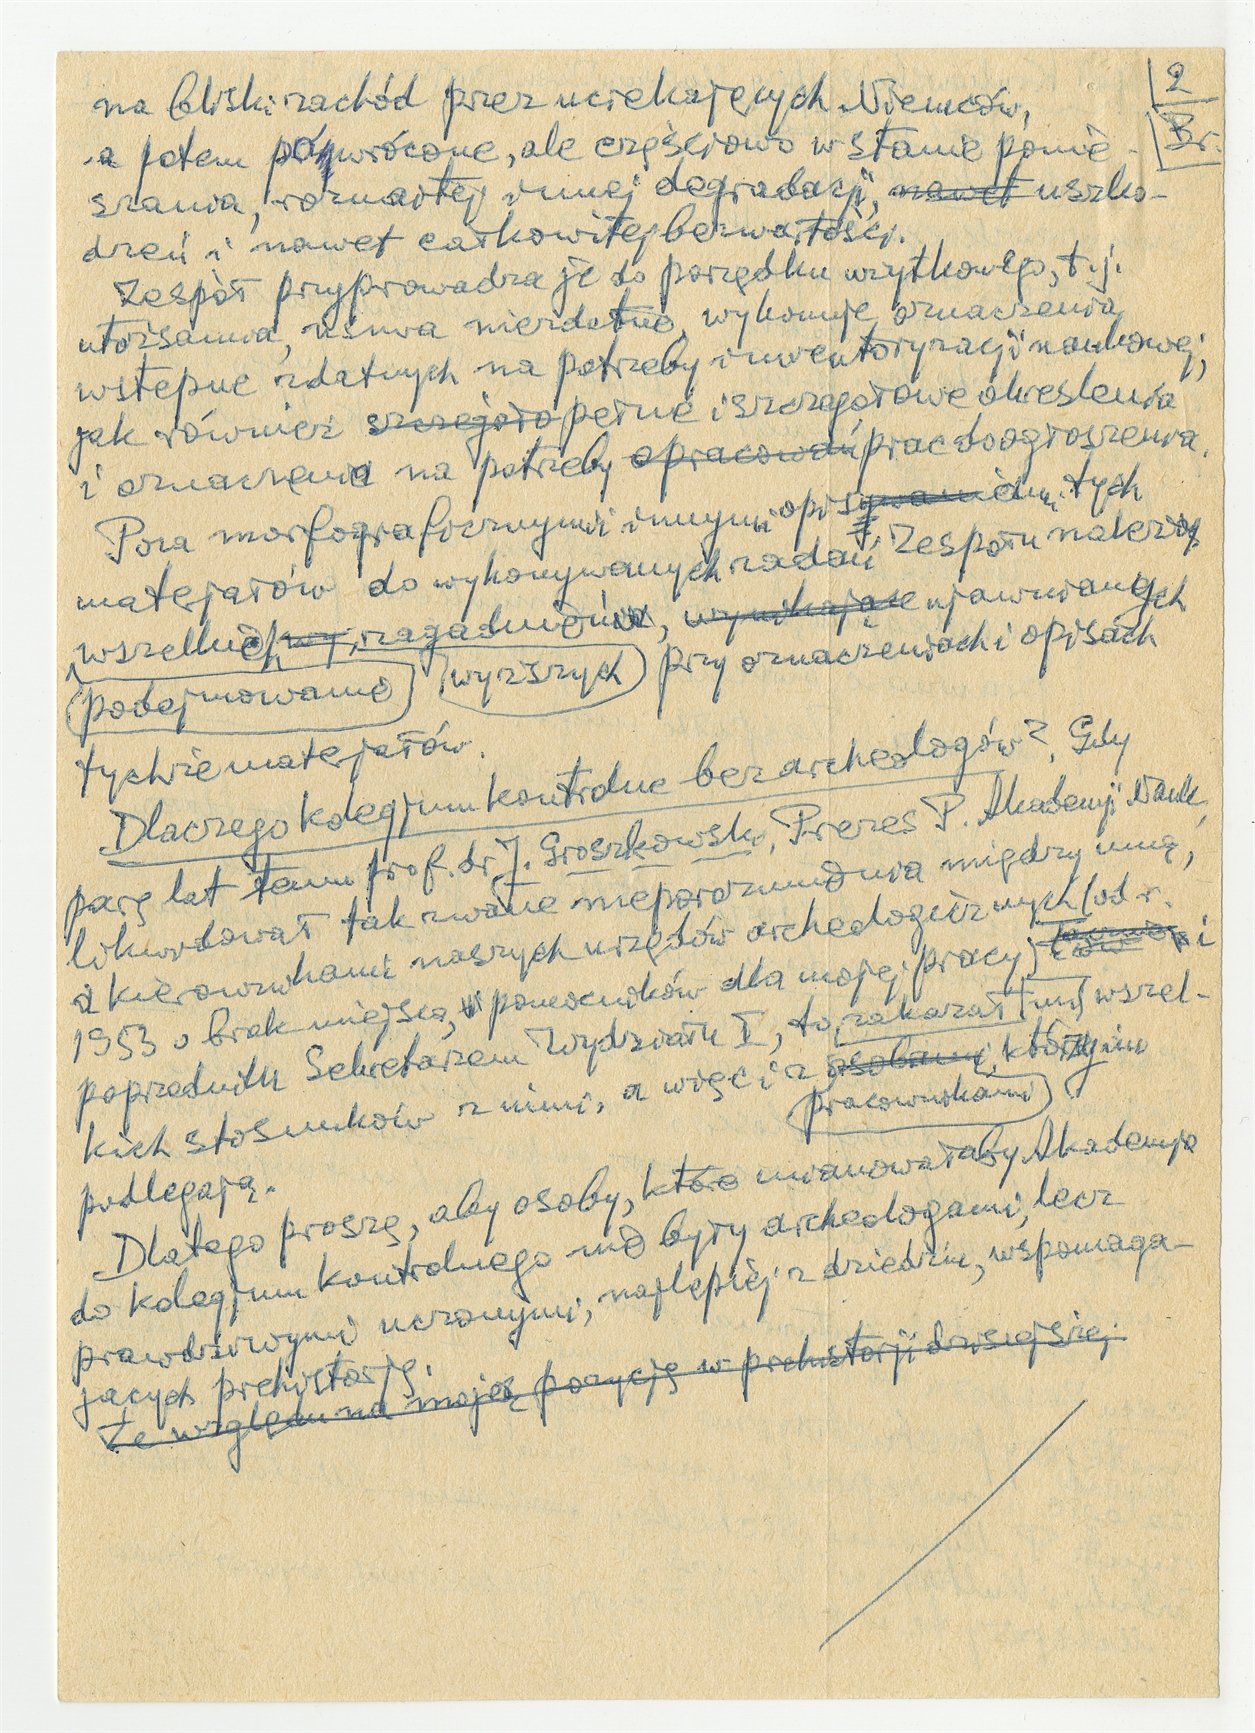 2
Br.
na bliski zachód przez uciekających Niemców,
a potem powrócone, ale częściowo w stanie pomie-
szania, rozmaitej innej degradacji, nawet uszko-
dzeń i nawet całkowitej bezwartości.
Zespół przyprowadza je do porządku użytkowego, t.j.
utożsamia, usuwa niezdatne, wykonuje oznaczenia
wstępne zdatnych na potrzeby inwentoryzacji naukowej,
jak również szczegóło pełne i szczegółowe określenia
i oznaczenia na potrzeby opracowań prac do ogłoszenia.
Poza morfograficznymi i innymi opisywaniem tych
materjałów do wykonywanych zadań Zespołu należą
wszelkich zagadnień, wynikające ujawnianych
podejmowanie wyższych przy oznaczeniach i opisach
tychże materjałów.
Dlaczego kolegjum kontrolne bez archeologów? Gdy
parę lat temu prof. dr J. Groszkowski, Prezes P. Akademji Nauk,
likwidował tak zwane nieporozumienia między mną,
a kierownikami naszych urzędów archeologicznych (od r.
1953 o brak miejsca, i pomocników dla mojej pracy) i
poprzednim Sekretarzem Wydziału I, to zakazał mi wszel-
kich stosunków z nimi, a więc i z osobami, którzy im
pracownikami
podlegają.
Dlatego proszę, aby osoby, które mianowałaby Akademja
do kolegjum kontrolnego nie były archeologami, lecz
prawdziwymi uczonymi, najlepiej z dziedzin, wspomaga-
jących prehistorję.
Ze względu na moją pozycję w prehistorji dzisiejszej